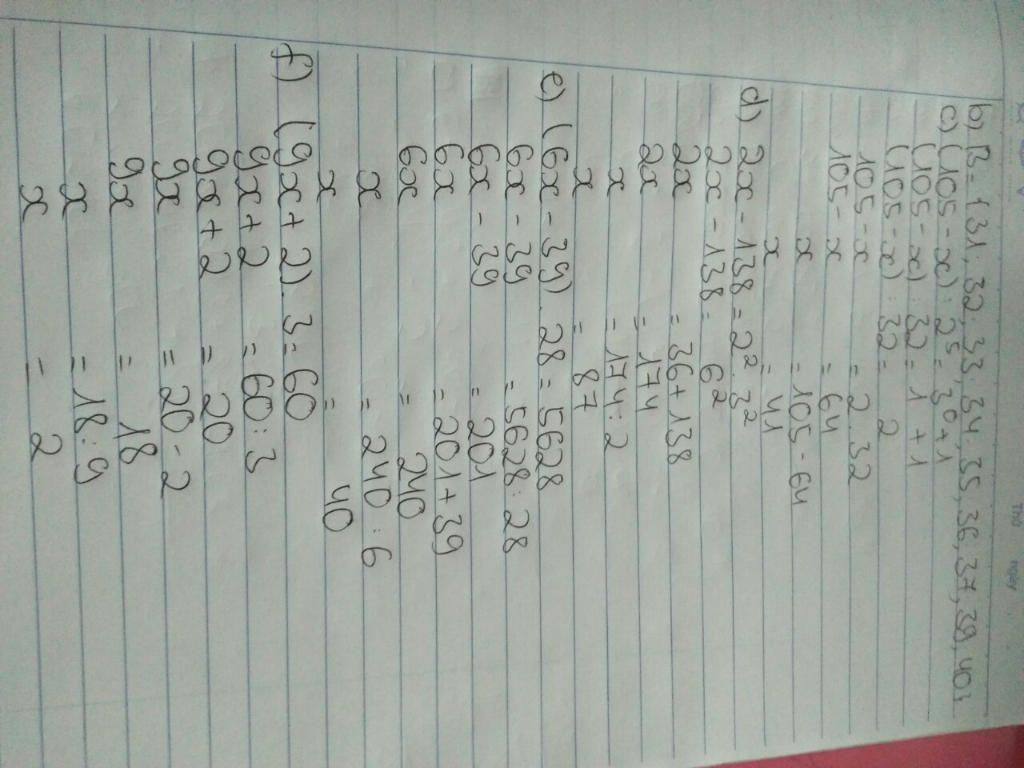 Thứ ngày
b) B = {31, 32, 33, 34, 35, 36, 37, 39, 40}
c) (105 - x) : 2⁵ = 3⁰ + 1
(105 - x) : 32 = 1 + 1
(105 - x) : 32 = 2
105 - x = 2 . 32
105 - x = 64
x = 105 - 64
x = 41
d) 2x - 138 = 2² . 3²
2x - 138 = 6²
2x = 36 + 138
2x = 174
x = 174 : 2
x = 87
e) (6x - 39) . 28 = 5628
6x - 39 = 5628 : 28
6x - 39 = 201
6x = 201 + 39
6x = 240
x = 240 : 6
x = 40
f) (9x + 2) . 3 = 60
9x + 2 = 60 : 3
9x + 2 = 20
9x = 20 - 2
9x = 18
x = 18 : 9
x = 2